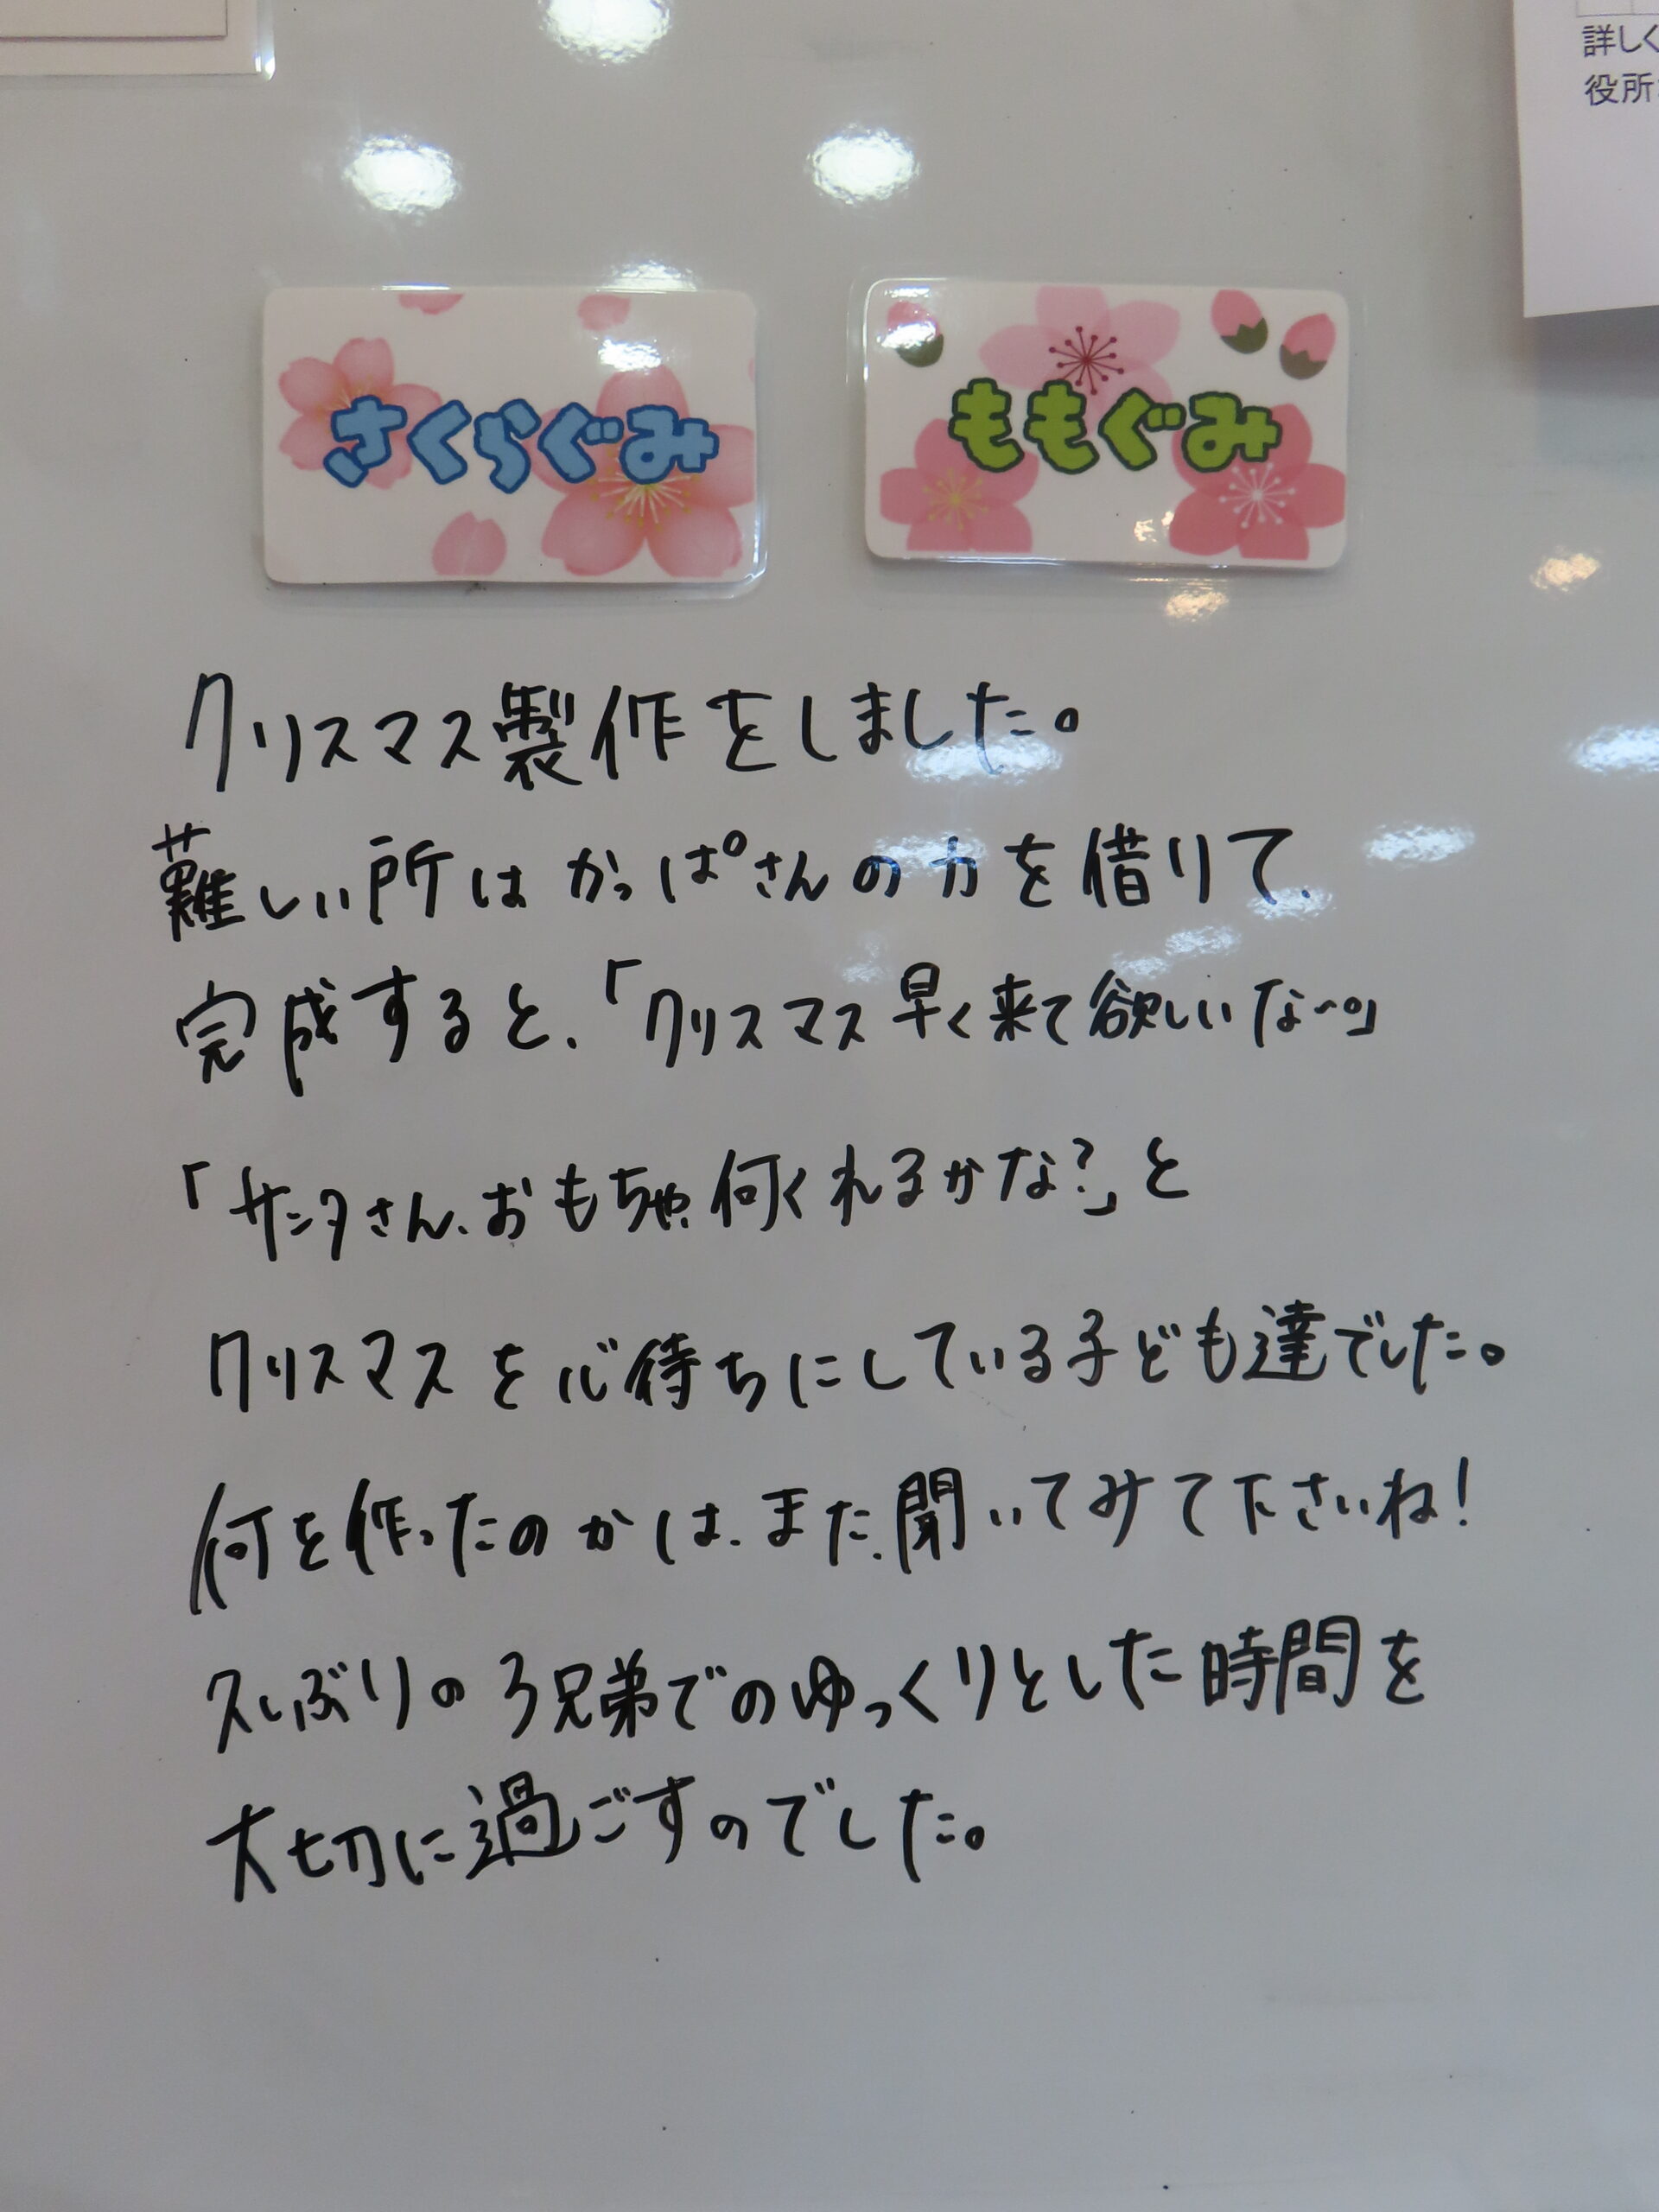 詳しく
役所
さくらぐみ
ももぐみ
クリスマス製作をしました。
難しい所はかっぱさんの力を借りて、
完成すると、「クリスマス早く来て欲しいな〜。」
「サンタさん、おもちゃ何くれるかな?」と
クリスマスを心待ちにしている子ども達でした。
何を作ったのかは、また、聞いてみて下さいね!
久しぶりの3兄弟でのゆっくりとした時間を
大切に過ごすのでした。